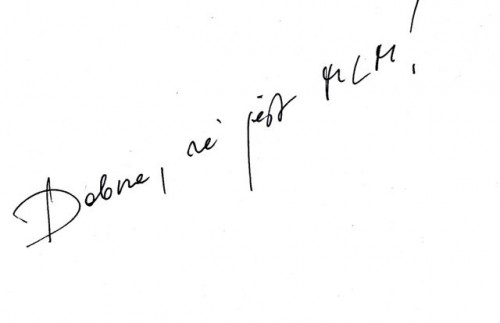 Dobrze, że jest MLM!